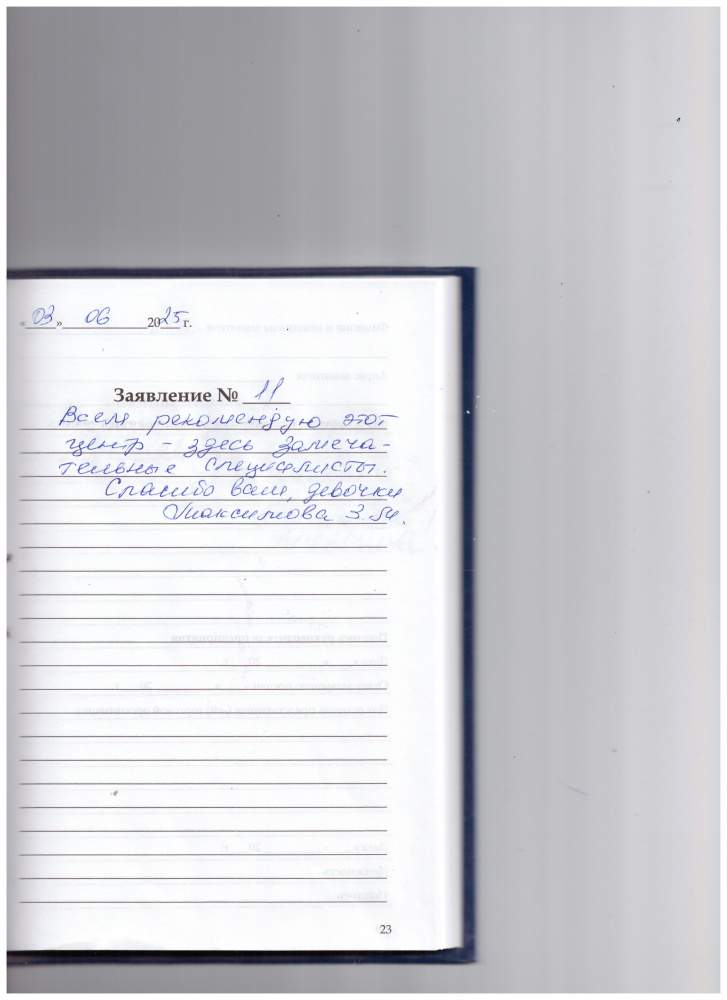 « 03 » 06 2025 г.
Заявление № 11
Всем рекомендую этот
центр – здесь замеча-
тельные специалисты.
Спасибо вам, девочки
Максимова З.М.
23